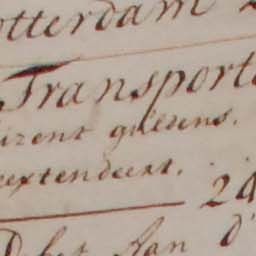 otterdam
Transport
izent guldens.
eextendeert.
24
het Aan d'